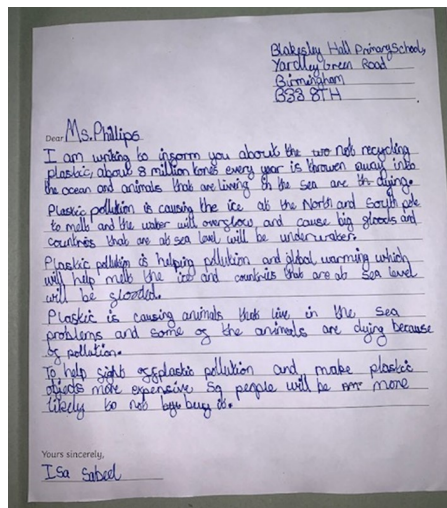 Blakesley Hall Primary School,
Yardley Green Road
Birmingham
B33 8TH
Dear Ms. Phillips
I am writing to inform you about the not recycling
plastic, about 8 million tones every year is thrown away into
the ocean and animals that are living in the sea are dying.
Plastic pollution is causing the ice at the North and South pole
to melt and the water will overflow and cause big floods and
countries that are at sea level will be underwater.
Plastic pollution is helping pollution and global warming which
will help melt the ice and countries that are at sea level
will be flooded.
Plastic is causing animals that live in the sea
problems and some of the animals are dying because
of pollution.
To help fight off plastic pollution and make plastic
objects more expensive so people will be more
likely to not buy it.
Yours sincerely,
Isa Sabeel